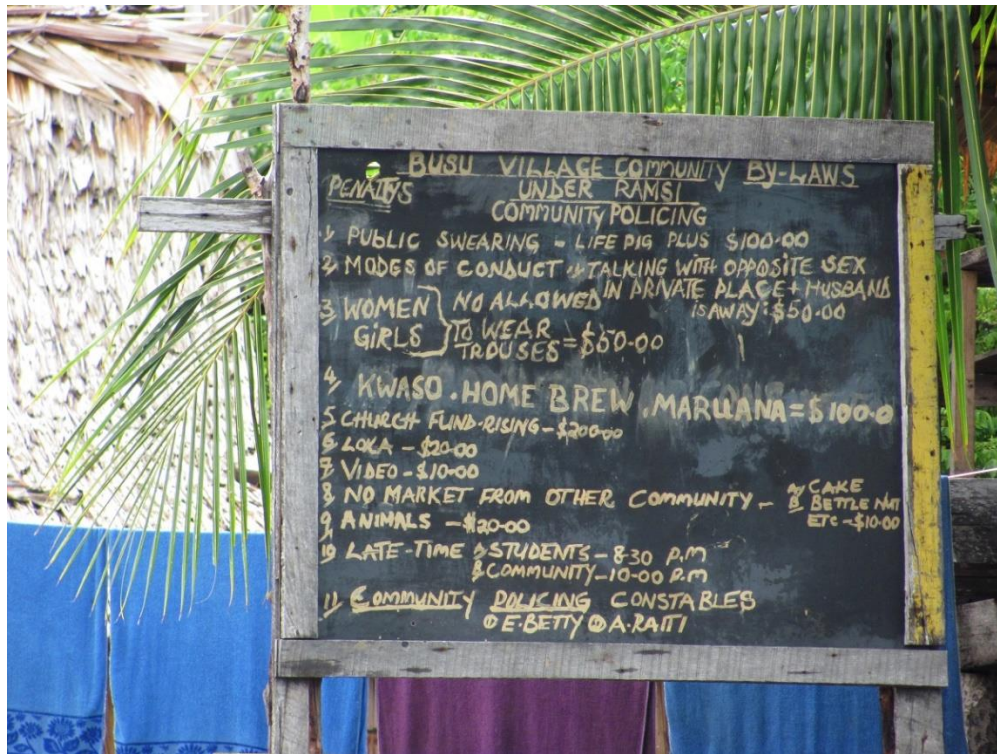 BUSU VILLAGE COMMUNITY BY-LAWS
PENALTYS UNDER RAMSI
COMMUNITY POLICING
1, PUBLIC SWEARING - LIFE PIG PLUS $100.00
2, MODES OF CONDUCT 1, TALKING WITH OPPOSITE SEX
IN PRIVATE PLACE + HUSBAND
IS AWAY: $50.00
3, WOMEN GIRLS } NO ALLOWED
TO WEAR
TROUSES = $50.00
4, KWASO. HOME BREW. MARUANA = $100.0
5 CHURCH FUND-RISING - $200.00
6, LOKA - $20.00
7, VIDEO - $10.00
8, NO MARKET FROM OTHER COMMUNITY - A, CAKE
B, BETTLE NUT
ETC - $10.00
9, ANIMALS - $20.00
10, LATE-TIME A, STUDENTS - 8.30 P.M
B, COMMUNITY - 10-00 P.M
11, COMMUNITY POLICING CONSTABLES
① E. BETTY ② A. RAITI